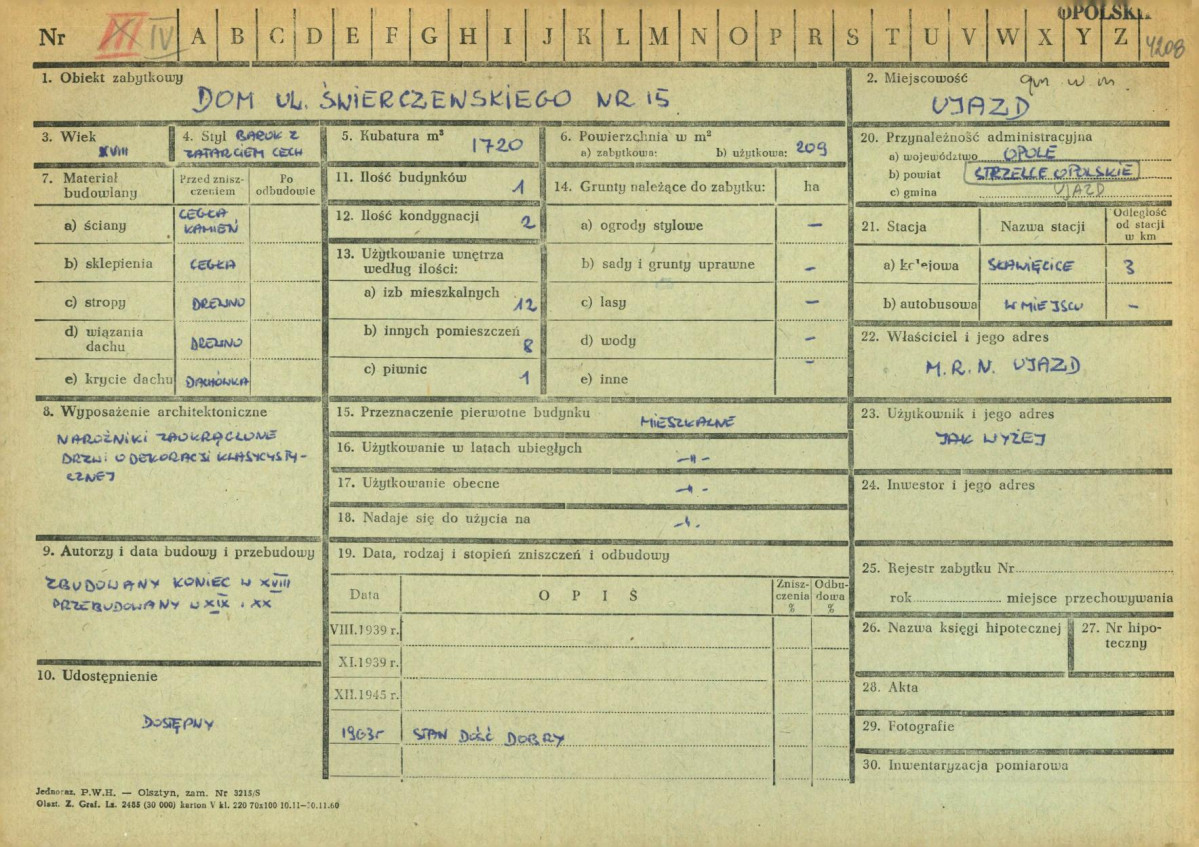 OPOLSKIE
Nr III IV A B C D E F G H I J K L M N O P R S T U V W X Y Z 4208
1. Obiekt zabytkowy
DOM UL. ŚWIERCZEWSKIEGO NR 15
2. Miejscowość gm. w m.
UJAZD
3. Wiek
XVIII
4. Styl BAROK Z
ZATARCIEM CECH
5. Kubatura m³
1720
6. Powierzchnia w m²
a) zabytkowa: b) użytkowa: 209
20. Przynależność administracyjna
a) województwo OPOLE
b) powiat STRZELCE OPOLSKIE
c) gmina UJAZD
7. Materiał
budowlany
Przed znisz-
czeniem
Po
odbudowie
a) ściany CEGŁA
KAMIEŃ
b) sklepienia CEGŁA
c) stropy DREWNO
d) wiązania
dachu DREWNO
e) krycie dachu DACHÓWKA
11. Ilość budynków 1
12. Ilość kondygnacji 2
13. Użytkowanie wnętrza
według ilości:
a) izb mieszkalnych 12
b) innych pomieszczeń 8
c) piwnic 1
14. Grunty należące do zabytku: ha
a) ogrody stylowe –
b) sady i grunty uprawne –
c) lasy –
d) wody –
e) inne –
21. Stacja Nazwa stacji Odległość
od stacji
w km
a) kolejowa SŁAWIĘCICE 3
b) autobusowa W MIEJSCU –
22. Właściciel i jego adres
M.R.N. UJAZD
8. Wyposażenie architektoniczne
NAROŻNIKI ZAOKRĄGLONE
DRZWI O DEKORACJI KLASYCYSTY-
CZNEJ
15. Przeznaczenie pierwotne budynku MIESZKALNE
16. Użytkowanie w latach ubiegłych –"–
17. Użytkowanie obecne –"–
18. Nadaje się do użycia na –"–
23. Użytkownik i jego adres
JAK WYŻEJ
24. Inwestor i jego adres
9. Autorzy i data budowy i przebudowy
ZBUDOWANY KONIEC W XVIII
PRZEBUDOWANY W XIX i XX
19. Data, rodzaj i stopień zniszczeń i odbudowy
Data O P I S Znisz-
czenia
%
Odbu-
dowa
%
VIII.1939 r.
XI.1939 r.
XII.1945 r.
1963r STAN DOŚĆ DOBRY
25. Rejestr zabytku Nr
rok miejsce przechowywania
26. Nazwa księgi hipotecznej
27. Nr hipo-
teczny
10. Udostępnienie
DOSTĘPNY
28. Akta
29. Fotografie
30. Inwentaryzacja pomiarowa
Jednoraz. P.W.H. — Olsztyn, zam. Nr 3213/S
Olszt. Z. Graf. Lz. 2485 (30 000) karton V kl. 220 70x100 10.11—10.11.60